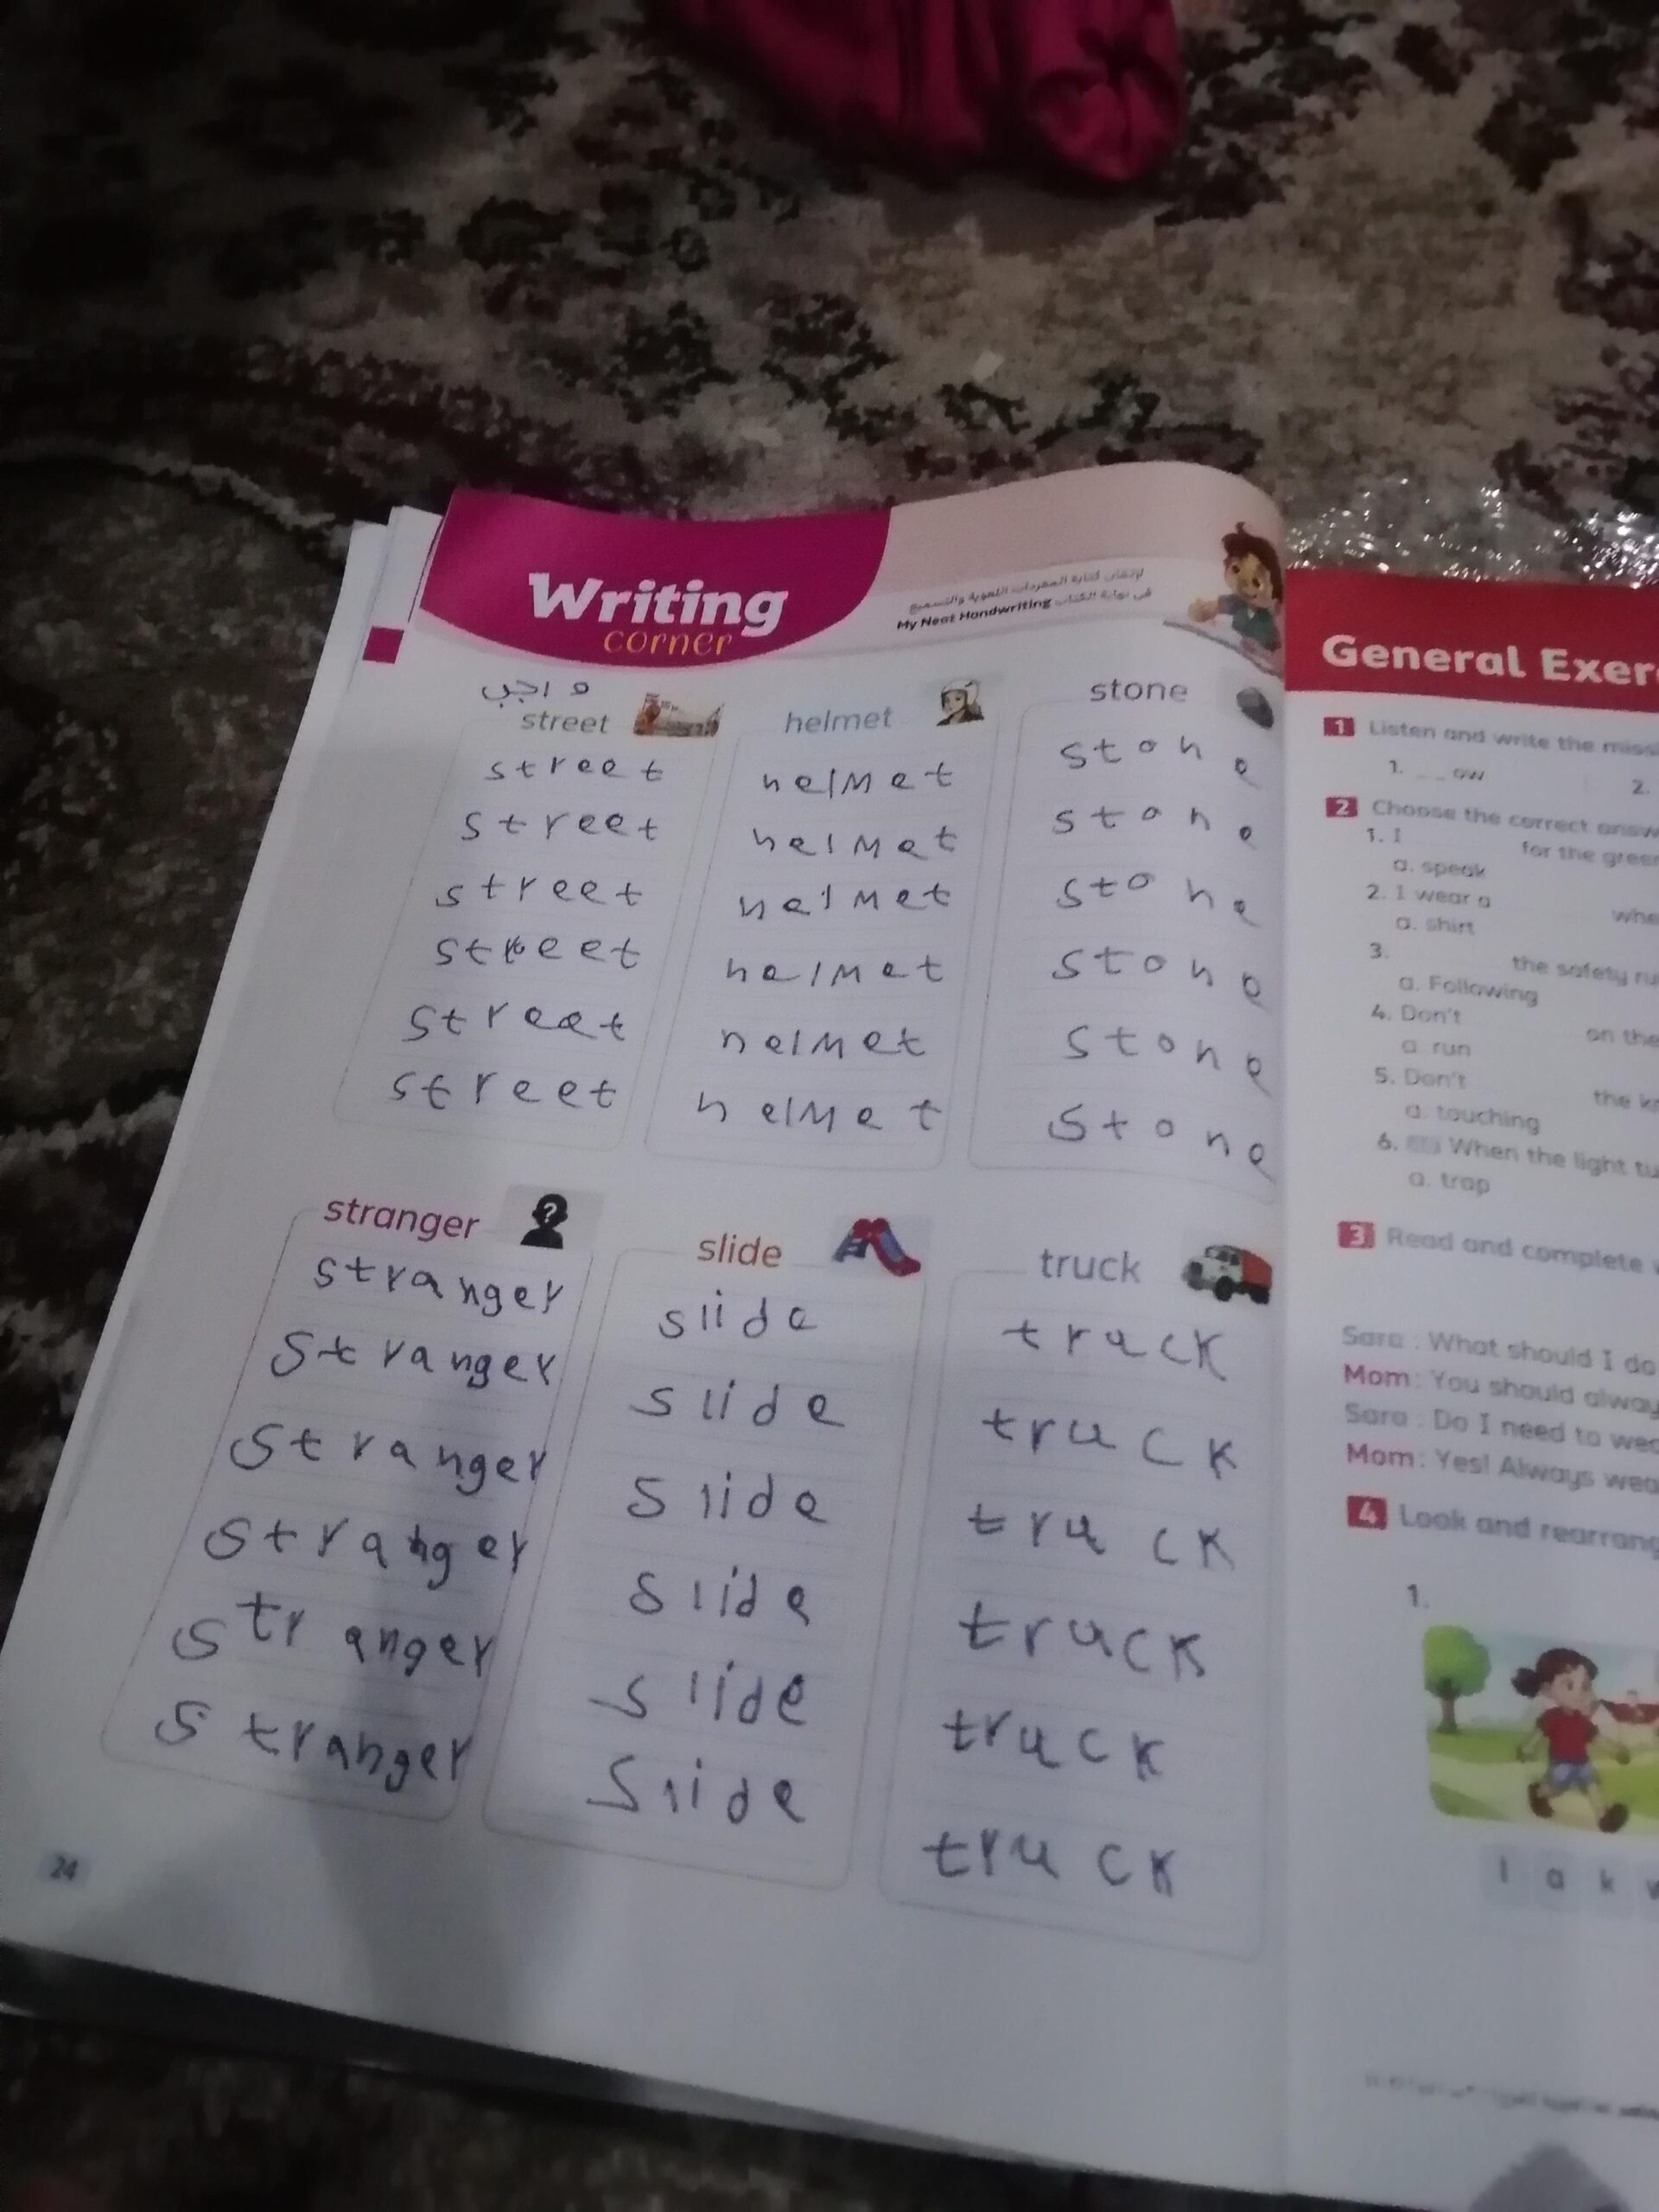 Writing
corner
لإتقان كتابة المفردات اللغوية والتسميع
فى نهاية الكتاب My Neat Handwriting
واجب
street
street
street
street
street
street
street
helmet
helmet
helmet
helmet
helmet
helmet
helmet
stone
stone
stone
stone
stone
stone
stone
stranger
?
stranger
stranger
stranger
stranger
stranger
stranger
slide
slide
slide
slide
slide
slide
slide
truck
truck
truck
truck
truck
truck
truck
24
General Exer
1 Listen and write the miss
1. _ _ ow 2.
2 Choose the correct answ
1. I for the green
a. speak
2. I wear a whe
a. shirt
3. the safety ru
a. Following
4. Don't on the
a. run
5. Don't the k
a. touching
6. When the light tu
a. trap
3 Read and complete
Sara : What should I do
Mom : You should alway
Sara : Do I need to wea
Mom : Yes! Always wea
4 Look and rearrang
1.
l a k w